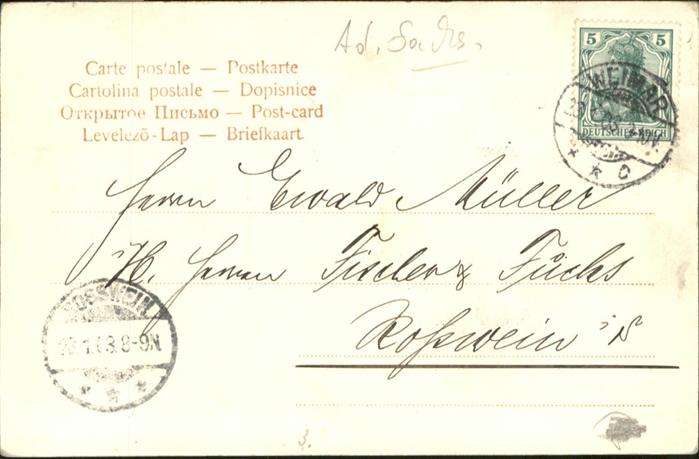 Ad. Sachs.
Carte postale — Postkarte
Cartolina postale — Dopisnice
Открытое Письмо — Post-card
Levelező-Lap — Briefkaart
5 5
DEUTSCHES REICH
WEIMAR
Herrn Ewald Müller
Herrn Fischer & Fuchs
Roßwein i/S
ROSSWEIN
8-9N
3.